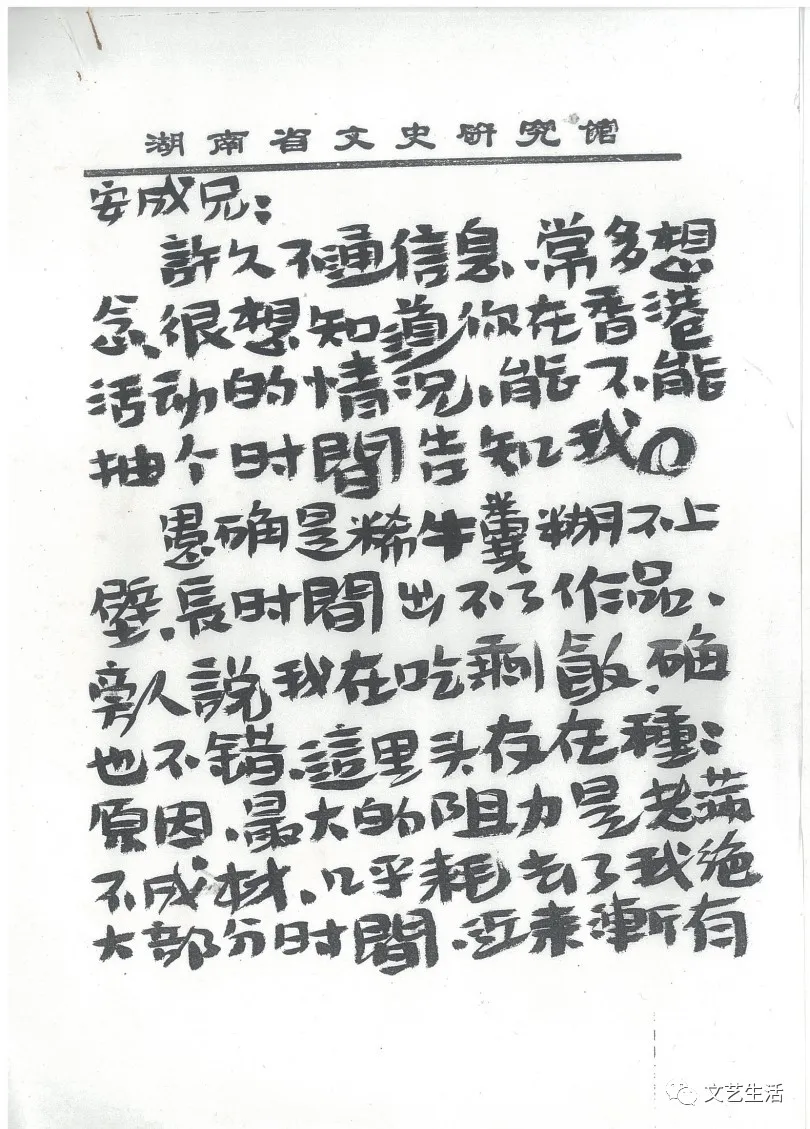 湖南省文史研究馆
安成兄:
許久不通信息、常多想
念、很想知道你在香港
活动的情况、能不能
抽个时間告知我。
愚确是稀牛糞糊不上
壁、長时間出不了作品、
旁人説我在吃剩飯、确
也不錯、這里头存在種:
原因、最大的阻力是老满
不成材、几乎耗去了我绝
大部分时間、近来漸有
文艺生活